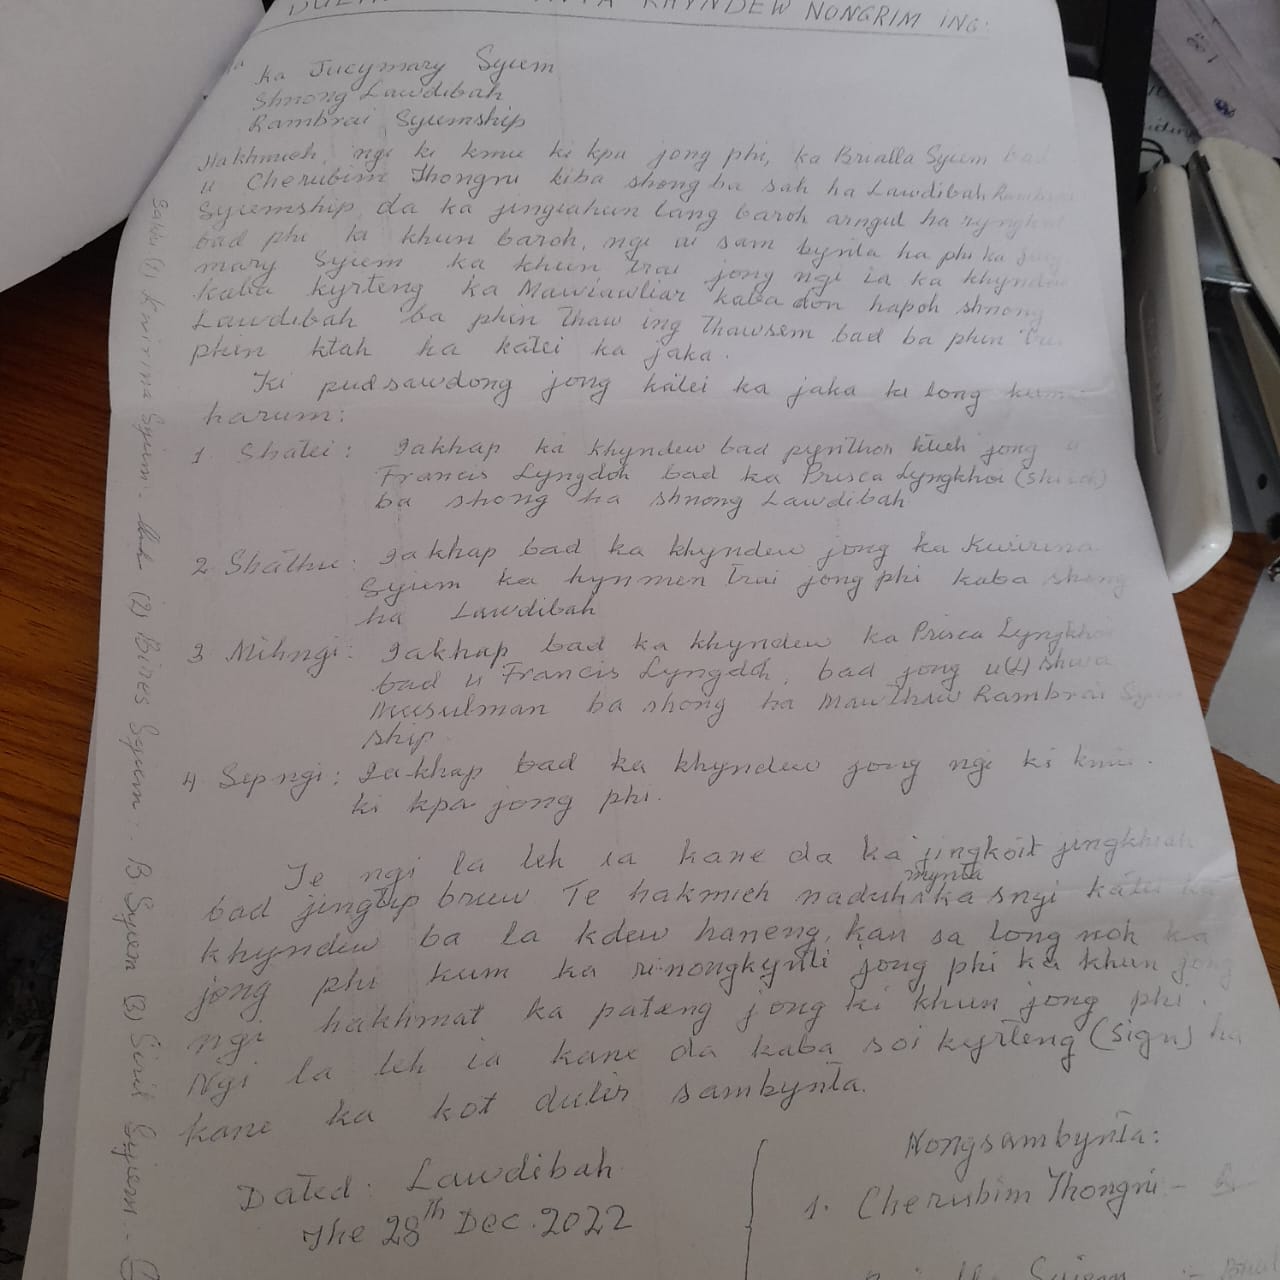 KHYNDEW NONGRIM ING.
Ka Jucymary Syiem
Shnong Lawdibah
Rambrai Syiemship
Hakhmieh, ngi ki kmie ki kpa jong phi, ka Brialla Syiem bad
u Cherubim Thongni kiba shong ba sah ha Lawdibah Rambrai
Syiemship, da ka jingiahun lang baroh arngut ha
bad phi ki khun baroh, ngi ai sam bynta ha phi ka Jucy
mary Syiem ka khun trai jong ngi ia ka khyndew
kaba kyrteng ka Mawiawliar kaba don hapoh shnong
Lawdibah ba phin thaw ing thawsem bad ba phin
phin ktah ha katei ka jaka.
Ki pud sawdong jong katei ka jaka ki long kum
harum:
1. Shatei: Iakhap ka khyndew bad pynthor jong u
Francis Lyngdoh bad ka Prisca Lyngkhoi
ba shong ha shnong Lawdibah
2 Shathie: Iakhap bad ka khyndew jong ka Kwirina
Syiem ka hynmen trai jong phi kaba shong
ha Lawdibah
3 Mihngi: Iakhap bad ka khyndew ka Prisca Lyngkhoi
bad u Francis Lyngdoh, bad jong u(L) Shwa
Musulman ba shong ha Mawthaw Rambrai Syiem
ship.
4 Sepngi: Ia-khap bad ka khyndew jong ngi ki kmie.
ki kpa jong phi.
Te ngi la leh ia kane da ka jingkoit jingkhiah
bad jingtip briew Te hakmieh naduh mynta ka sngi katei ka
khyndew ba la kdew haneng, kan sa long noh ka
jong phi kum ka ri nongkynti jong phi ka khun jong
ngi hakhmat ka pateng jong ki khun jong phi.
Ngi la leh ia kane da kaba soi kyrteng (sign) ha
kane ka kot dulir sambynta.
Dated: Lawdibah
The 28th Dec. 2022
Nongsambynta:
1. Cherubim Thongni -
Syiem
Sakhi (1) Kwirina Syiem - (2) Bires Syiem - B Syiem (3) Siril Syiem -